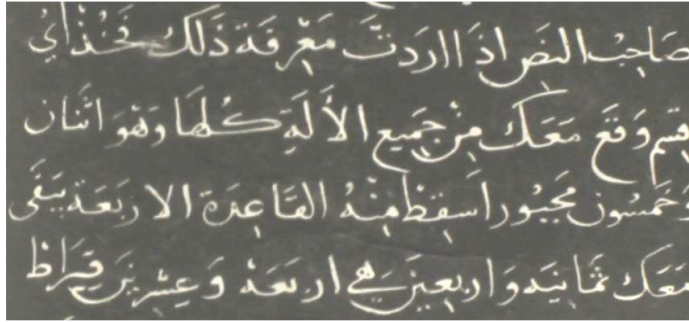 صَاحِبُ النِضَ اذَا ارَدتَّ مَعْرِفَة ذَلكَ فَخُذْ اي
قِسم وَقَعَ مَعَكَ مِنْ جَمِيع الأَلَةِ كُلهَا وَهْوَ اثَنان
وَخَمسُون مَجبُور اسقِطْ مِنْهُ القَاعِدَة الاربَعَة يَبَقَى
مَعَكَ ثمَانِيَه وَاربعِينَ فِي اربَعَة وَعِشرِينَ قِيرَاطْ